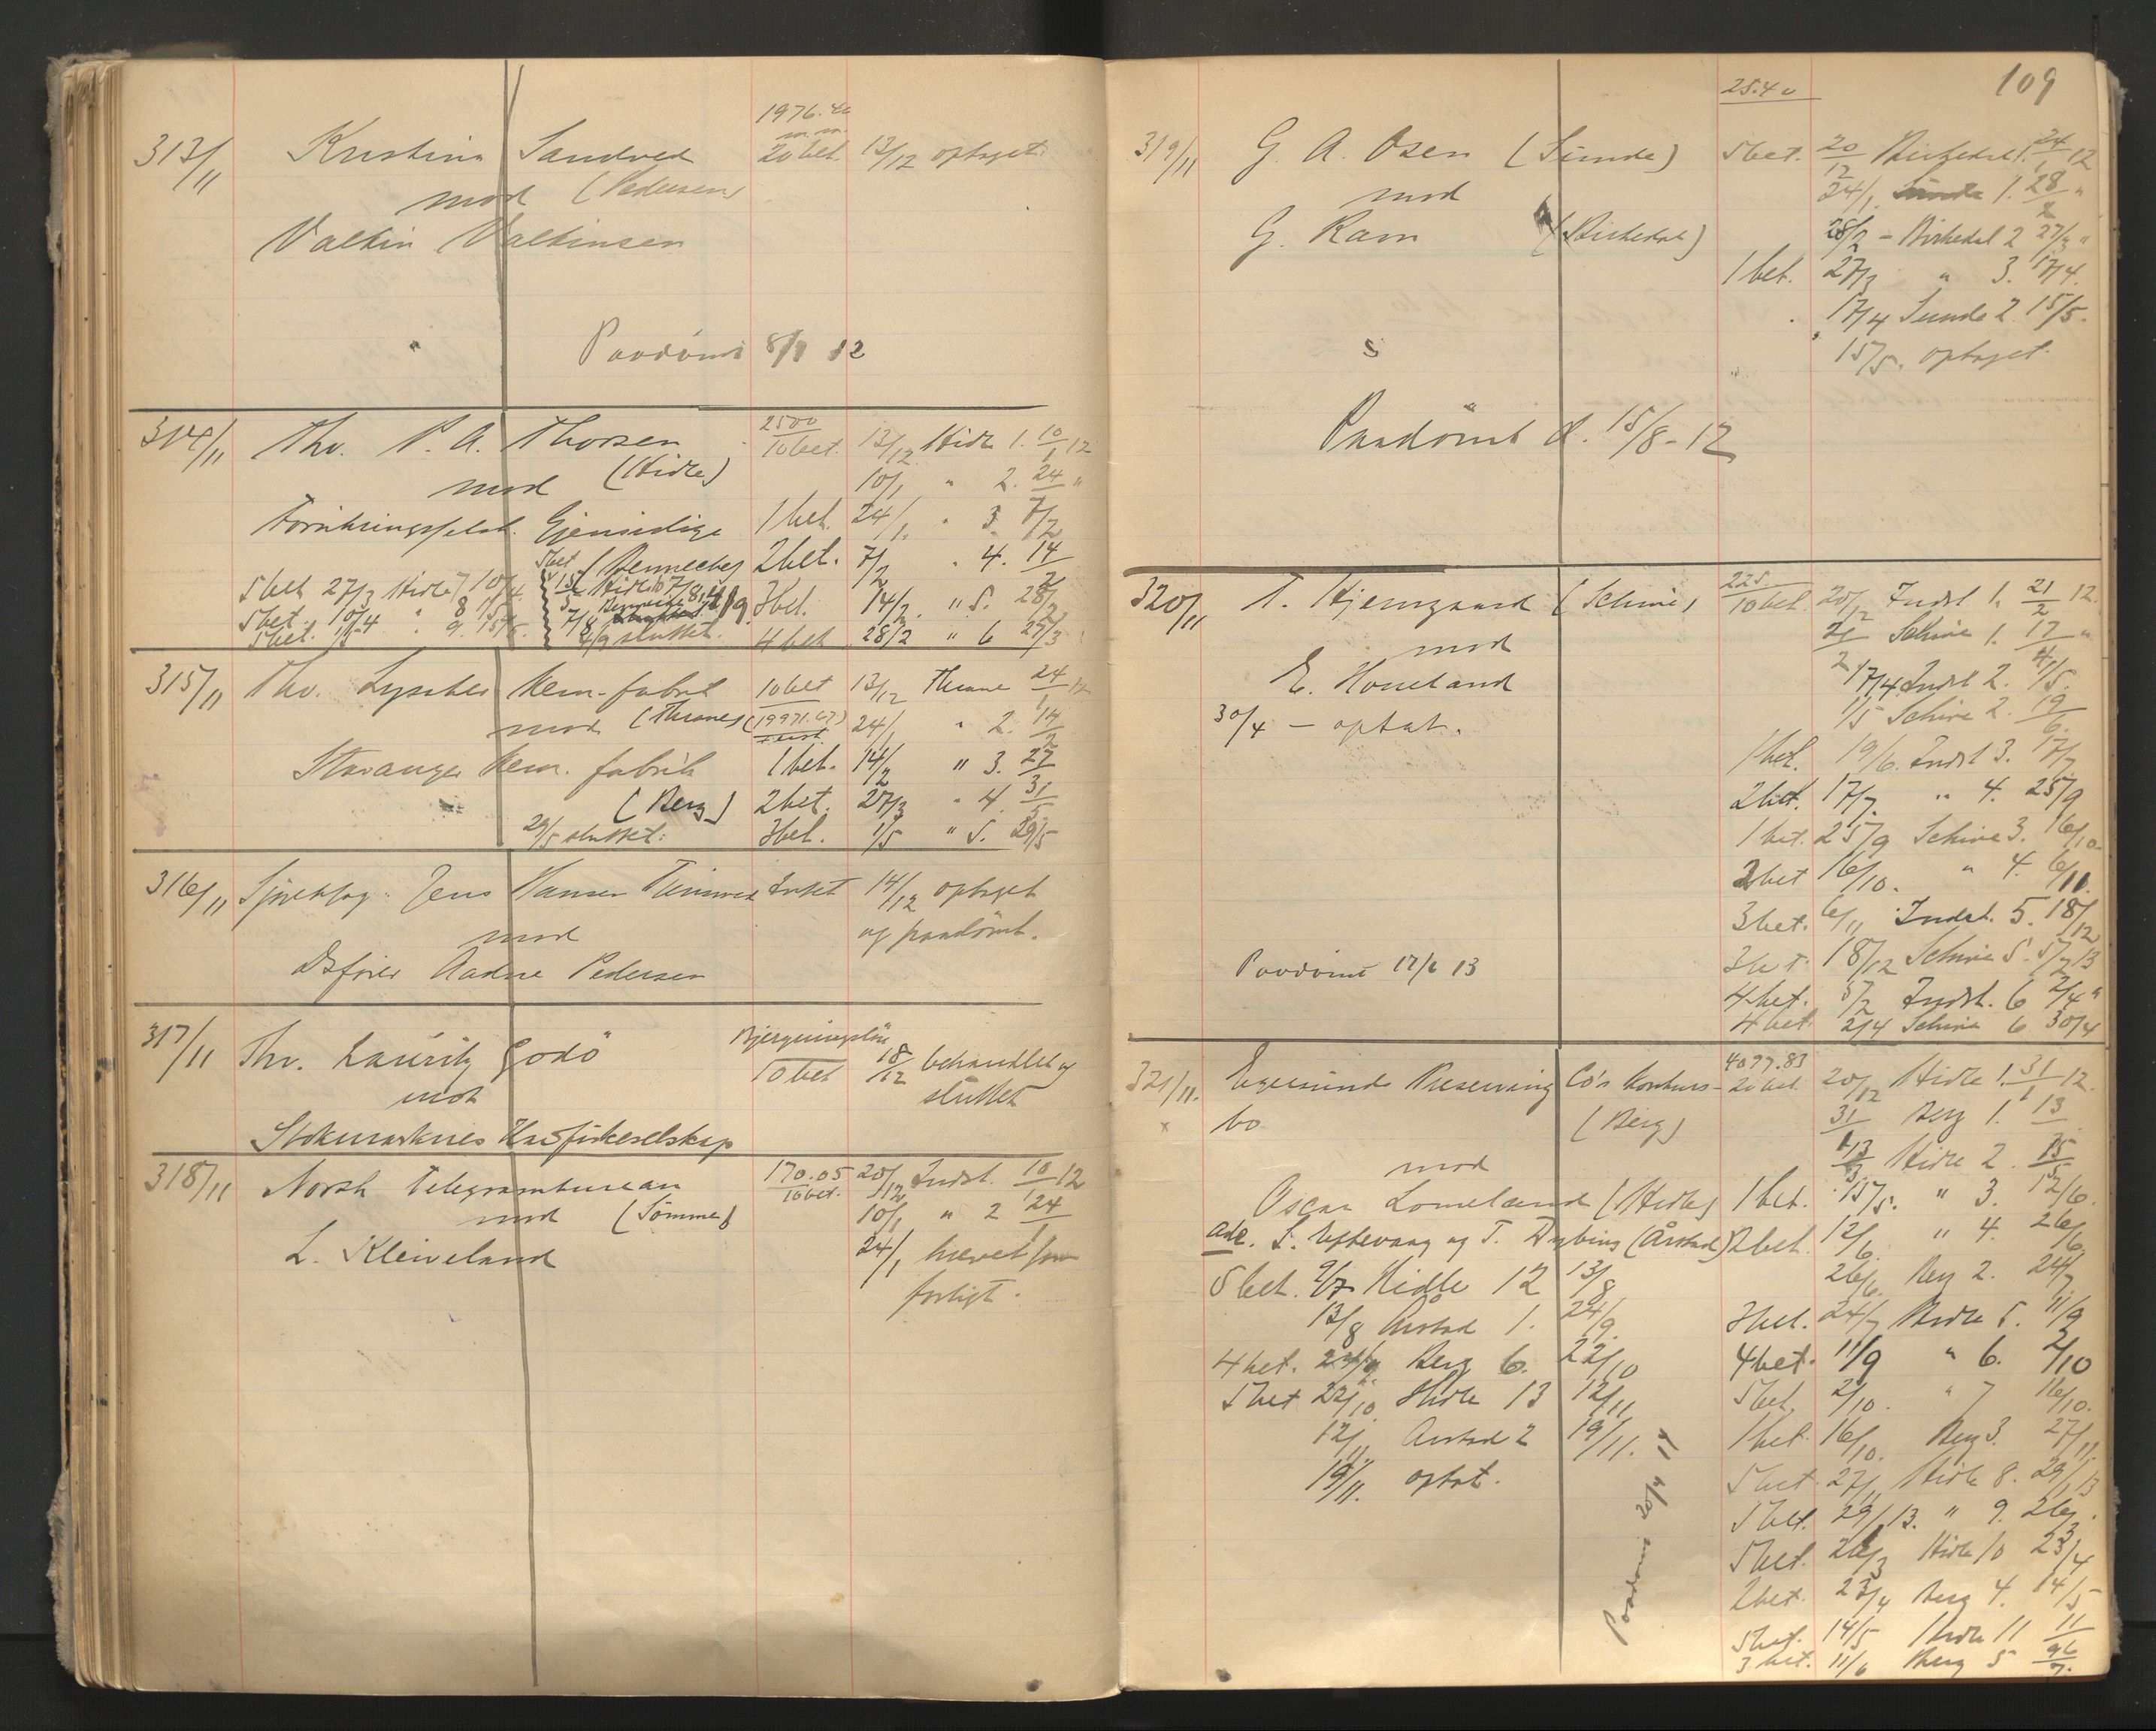 1976.42
m.m.
313/11 Kristina Sandved 20 bet. 13/12 optaget.
mod (Pedersen)
Valkin Valkinsen
Paadömt 8/1 12
2500
314/11 Thv. P. A. Thorsen 10 bet. 13/12 Hidle 1. 10/1 12
mod (Hidle) 10/1 " 2. 24 "
Forsikringsselsk. Gjensidige 1 bet. 24/1. " 3. 7/2
5 bet (Benneche) 2 bet. 7/2 " 4. 14/2
5 bet 27/3 Hidle 7 10/4. 15/5 Hidle 10 7/8 3 bet. 14/2. " 5. 28/2
5 bet. 10/4 " 8 1/5 7/8
5 bet. 1/5 " 9. 15/5. 4/9 sluttet. 4 bet 28/2 " 6 27/3
315/11 Thv. Lysaker Kem. fabrik 10 bet 13/12 Thrane 24/1 12
mod (Thrane) (19971.67) 24/1 " 2. 14/2
Stavanger Kem. fabrik 1 bet. 14/2 " 3. 27/3
(Berg) 2 bet. 27/3 " 4. 1/5
29/5 sluttet. 3 bet. 1/5 " 5. 29/5
316/11 Sjörettssag: Jens Hansen 14/12 optaget
mod og paadömt.
Aadne Pedersen
317/11 Thv. Lauritz Godö Bjergningslön
10 bet 18/12 behandlet og
mod sluttet
Stokmarknes Havfiskeselskap
318/11 Norsk Telegrambureau 170.05 20/12 Indst. 10/1 12
10 bet.
mod (Sömme) 10/1 " 2 24
L. Kleiveland 24/1 hævet som
forligt.
109
25.40
319/11 G. A. Osen (Sunde) 5 bet. 20/12 Birkedal 1. 24/1 12
mod 24/1. Sunde 1. 28/2 "
G. Ravn (Birkedal) 28/2 - Birkedal 2 27/3 "
1 bet. 27/3 " 3. 17/4.
17/4 Sunde 2. 15/5.
15/5. optaget.
Paadömt d. 15/8-12
225.
320/11 T. Hjemgaard (Schive) 10 bet. 20/12 Indst 1. 21/2 12.
mod 21/2 Schive 1. 17/4 "
E. Houeland 17/4 Indst 2. 1/5.
30/4 - optat. 1/5 Schive 2. 19/6.
1 bet. 19/6. Indst 3. 17/7
2 bet. 17/7. " 4. 25/9
1 bet. 25/9 Schive 3. 16/10.
2 bet 16/10. " 4. 6/11.
3 bet. 6/11 Indst. 5. 18/12
Paadömt 17/6 13 3 bet. 18/12 Schive 5. 5/2 13
4 bet. 5/2 Indst. 6 2/4 "
4 bet 2/4 Schive 6 30/4
4077.83
321/11. Egersunds Preserving Co's konkurs- 20 bet. 20/12 Hidle 1. 31/1 12.
x bo (Berg) 31/1 Berg 1. 13
mod 13/3 Hidle 2. 15/5
Oscar Lomeland (Hidle) 1 bet. 15/5. " 3. 12/6.
adc. S. Uftevaag og T. Dybing (Årstad) 2 bet. 12/6. " 4. 26/6.
5 bet. 9/7 Hidle 12 13/8 26/6. Berg 2. 24/7
13/8 Årstad 1. 24/9. 3 bet. 24/7 Hidle 5. 11/9
4 bet. 24/9 Berg 6. 22/10 4 bet. 11/9 " 6. 2/10
5 bet 22/10. Hidle 13 12/11 5 bet. 2/10. " 7 16/10.
12/11 Årstad 2 19/11. 1 bet. 16/10. Berg 3. 27/11
19/11. optat. 5 bet 27/11 Hidle 8. 29/1 13
5 bet. 29/1 13. " 9. 26/3.
5 bet. 26/3 Hidle 10 23/4
2 bet. 23/4 Berg 4. 14/5
5 bet. 14/5 Hidle 11 11/6
3 bet. 11/6 Berg 5